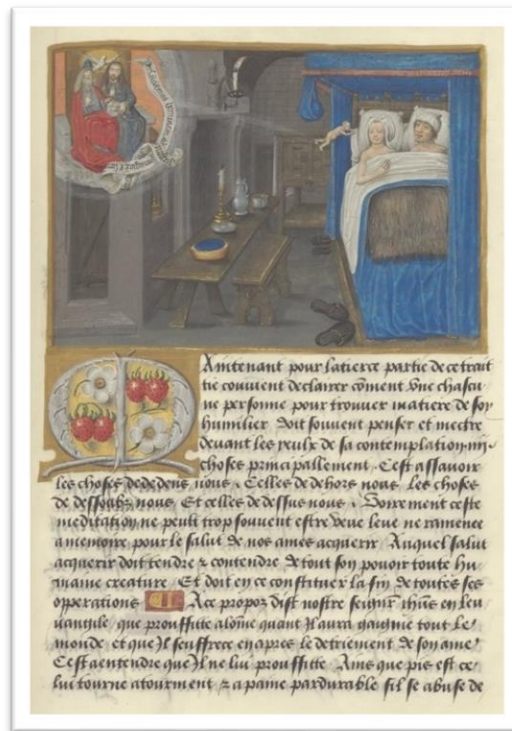 Aintenant pour la tierce partie de ce trait
tie convient declairer cōment vne chascu
ne personne pour trouver matiere de soy
humilier doit souvent penser et mectre
devant les yeulx de sa contemplation iiij
choses principallement. C'est assavoir
les choses de dedens nous. Celles de dehors nous. Les choses
de dessoubz nous. Et celles de dessus nous. Voirement ceste
meditation ne peult trop souvent estre
a memoire pour le salut de nos ames acquerir. Auquel salut
acquerir doit tendre & contendre de tout son povoir toute hu
maine creature. Et doit en ce constituer la fin de toutes ses
opperations A ce propoz dist nostre seignr ihūs en leu
vangile que prouffite a lōme quant Il aura gaignie tout le
monde et que Il seuffre en apres le detriement de son ame
C'est a entendre que Il ne lui prouffitte Ains que pis est ce
lui tourne a tourment & a paine pardurable sil se abuse de